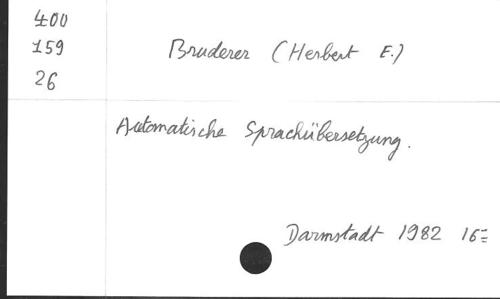 400
159
26
Bruderer (Herbert E.)
Automatische Sprachübersetzung.
Darmstadt 1982 16=